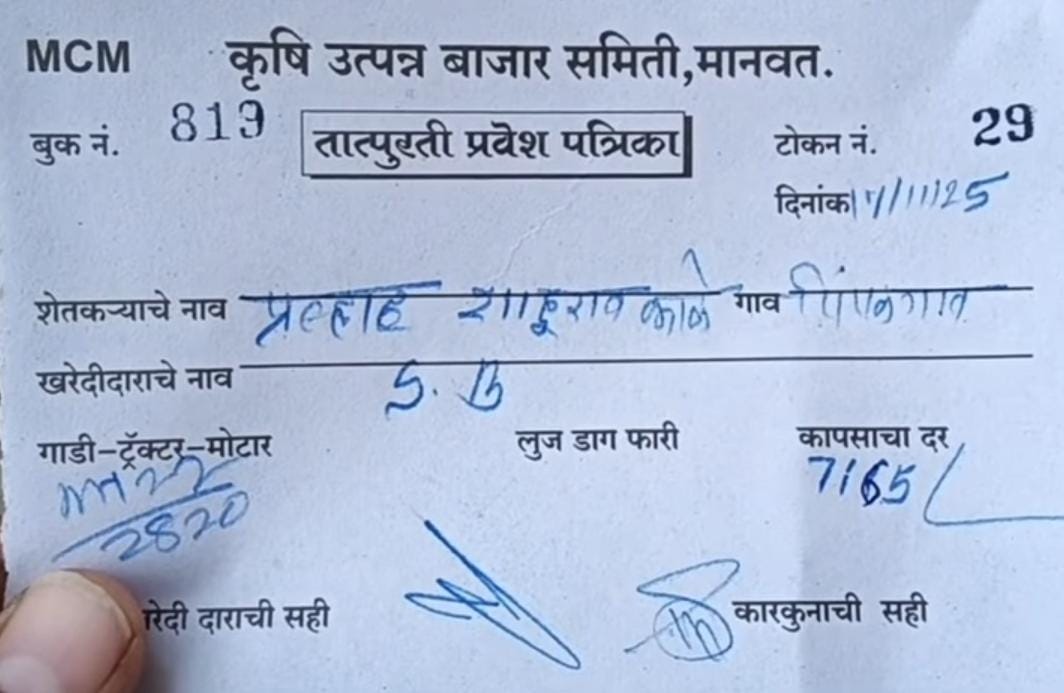 MCM कृषि उत्पन्न बाजार समिती,मानवत.
बुक नं. 819 तात्पुरती प्रवेश पत्रिका टोकन नं. 29
दिनांक 17/11/25
शेतकऱ्याचे नाव प्रल्हाद शाहूराव काळे गाव पिंपळगाव
खरेदीदाराचे नाव S. B
गाडी-ट्रॅक्टर-मोटार लुज डाग फारी कापसाचा दर
MH22 7165/
2820
रेदी दाराची सही कारकुनाची सही